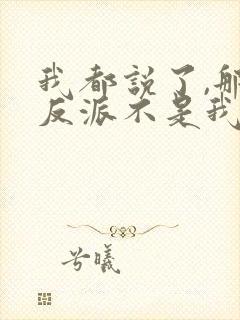 我都說了,那
反派不是我
兮曦